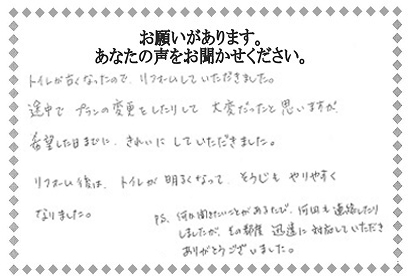 お願いがあります。
あなたの声をお聞かせください。
トイレが古くなったので、リフォームしていただきました。
途中で プランの変更をしたりして 大変だったと思いますが、
希望した日までに、きれいに していただきました。
リフォーム後は、トイレが 明るくなって、そうじも やりやすく
なりました。
P.S. 何か聞きたいことがあるたび、何回も連絡したり
しましたが、その都度 迅速に 対応していただき
ありがとうございました。